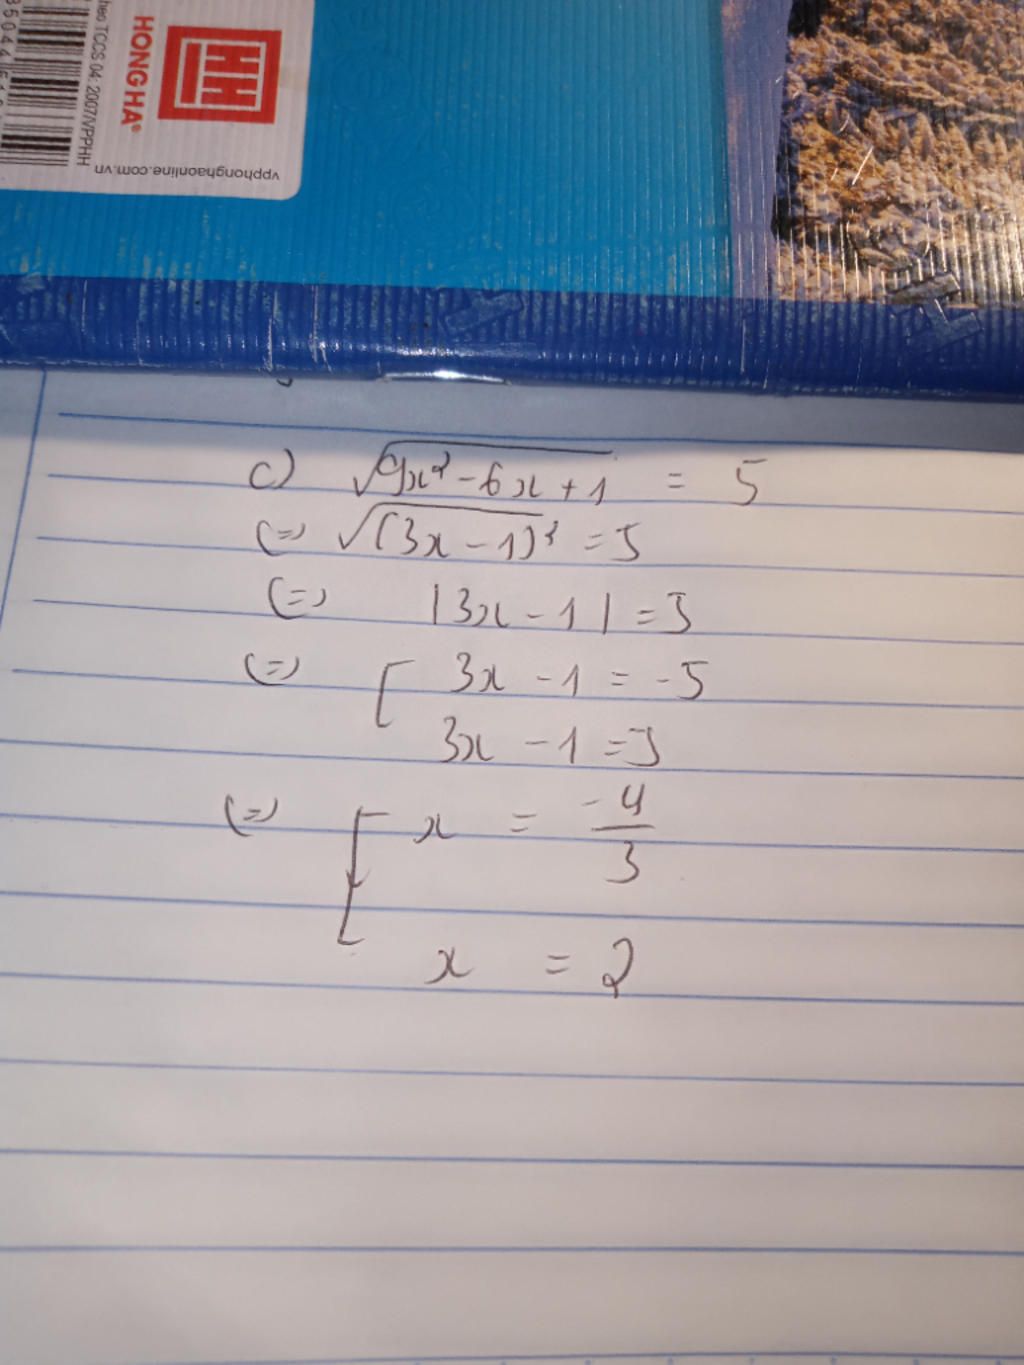 HONG HA®
heo TCCS 04: 2007/VPPHH
vpphonghaonline.com.vn
c) √(9x² - 6x + 1) = 5
(=) √(3x - 1)² = 5
(=) |3x - 1| = 5
(=) [ 3x - 1 = -5
3x - 1 = 5
(=) [ x = -4/3
x = 2